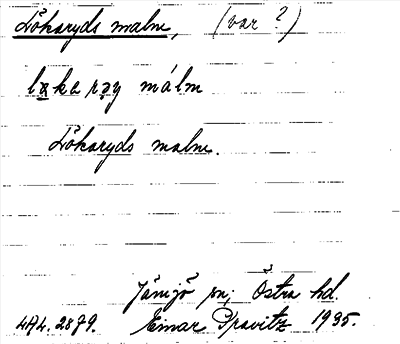 Lökaryds malm, (var ?)
løka ry málm
Lökaryds malm.
Jämjö sn; Östra hd.
474. 2879. Einar Pravitz 1935.